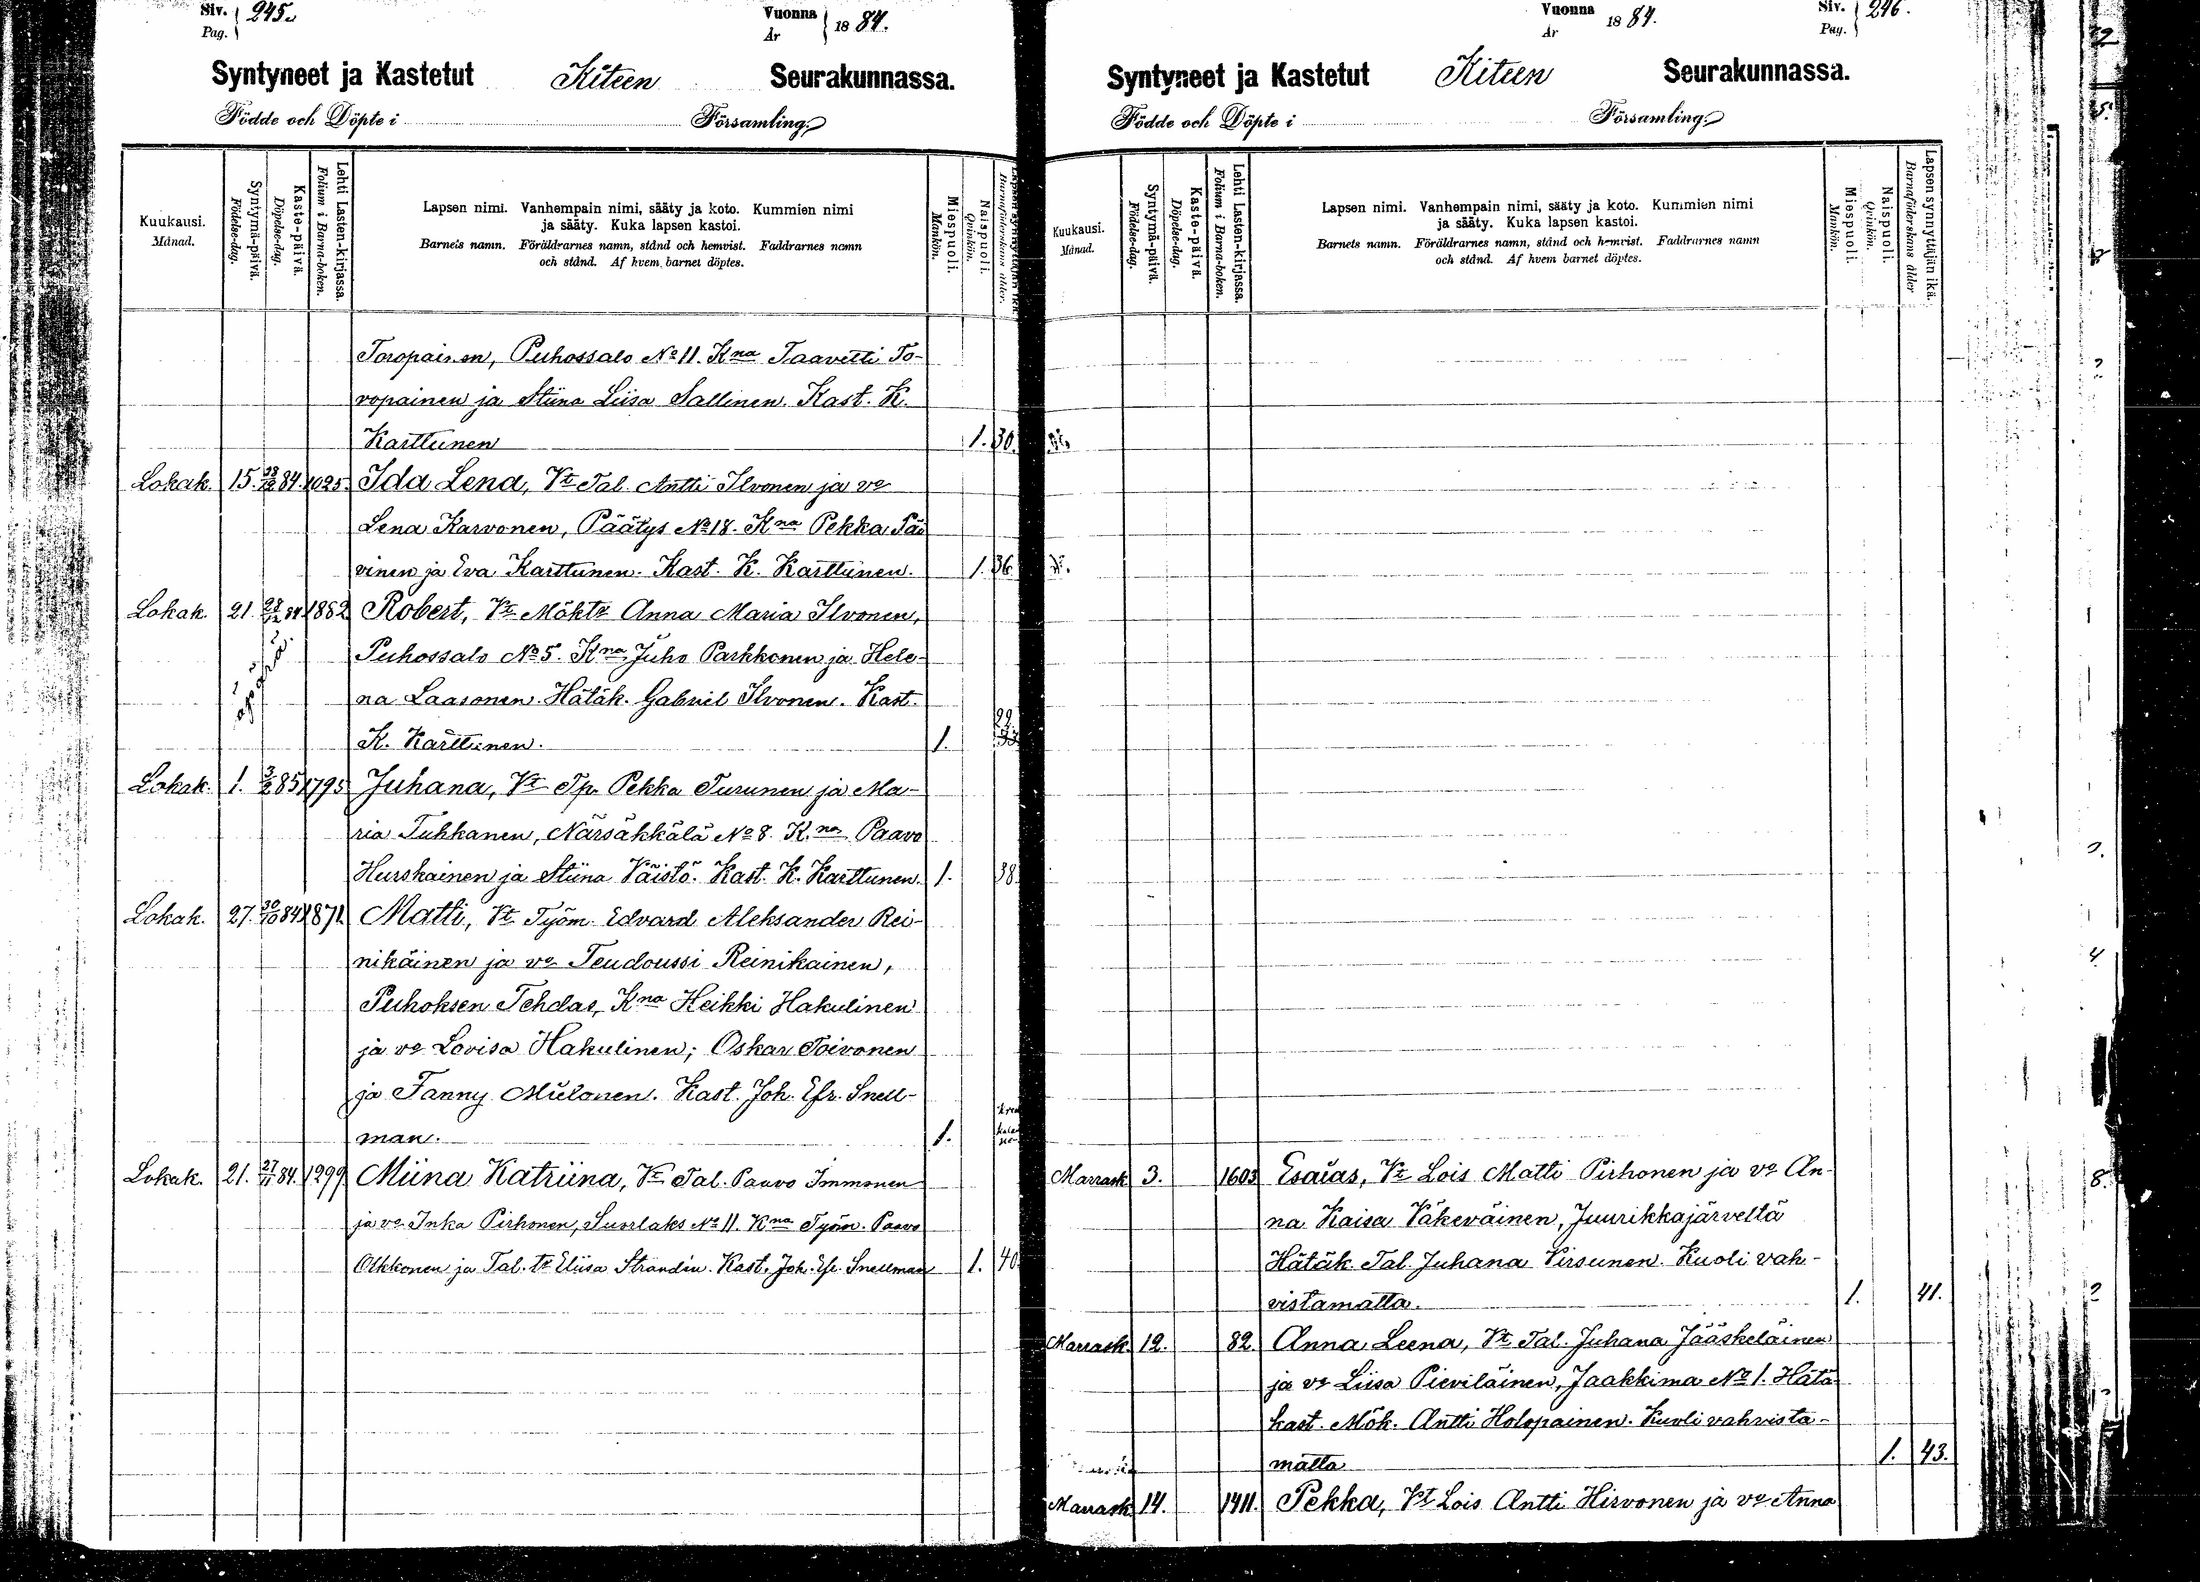 Siv. Pag. 245.
Vuonna År 1884.
Syntyneet ja Kastetut Kiteen Seurakunnassa.
Födde och Döpte i Församling.
Kuukausi. Månad.
Syntymä-päivä. Födelse-dag.
Kaste-päivä. Döpelse-dag.
Lehti Lasten-kirjassa. Folium i Barna-boken.
Lapsen nimi. Vanhempain nimi, sääty ja koto. Kummien nimi
ja sääty. Kuka lapsen kastoi.
Barnets namn. Föräldrarnes namn, stånd och hemvist. Faddrarnes namn
och stånd. Af hvem barnet döptes.
Miespuoli. Mankön.
Naispuoli. Qvinkön.
Toropainen, Puhossalo No 11. Kna Taavetti To-
ropainen ja Stiina Liisa Sallinen. Kast. K.
Karttunen 1. 30.
Lokak. 15. 84. 1025. Ida Lena, Vt Tal. Antti Ilvonen ja vo
Lena Karvonen, Päätys No 18. Kna Pekka Päi
vinen ja Eva Karttunen. Kast. K. Karttunen. 1. 36
Lokak. 21. 28/12 84 1862 Robert, Vt Möktr Anna Maria Ilvonen,
Puhossalo No 5. Kna Juho Parkkonen ja Hele-
na Laasonen. Hätäk. Gabriel Ilvonen. Kast.
K. Karttunen. 1.
Lokak. 1. 3/2 85 1795 Juhana, Vt Tp. Pekka Turunen ja Ma-
ria Tuhkanen, Närsäkkälä No 8. K.na Paavo
Hurskainen ja Stiina Väistö. Kast. K. Karttunen. 1. 38
Lokak. 27. 30/10 84 1871. Matti, Vt. Työm. Edvard Aleksander Rei-
nikäinen ja vo Teudoussi Reinikainen,
Puhoksen Tehdas, Kna Heikki Hakulinen
ja vo Lovisa Hakulinen; Oskar Toivonen
ja Fanny Miilonen. Kast. Joh. Efr. Snell-
man. 1.
Lokak. 21. 27/11 84. 1299 Miina Katriina, Vt Tal. Paavo Immonen
ja vo Inka Pirhonen, Suorlaks No 11. Kna Työm. Paavo
Olkkonen ja Tal. tr Eliisa Strandin. Kast. Joh. Ef. Snellman 1. 40.
Vuonna År 1884.
Siv. Pag. 246.
Syntyneet ja Kastetut Kiteen Seurakunnassa.
Födde och Döpte i Församling.
Kuukausi. Månad.
Syntymä-päivä. Födelse-dag.
Kaste-päivä. Döpelse-dag.
Lehti Lasten-kirjassa. Folium i Barna-boken.
Lapsen nimi. Vanhempain nimi, sääty ja koto. Kummien nimi
ja sääty. Kuka lapsen kastoi.
Barnets namn. Föräldrarnes namn, stånd och hemvist. Faddrarnes namn
och stånd. Af hvem barnet döptes.
Miespuoli. Mankön.
Naispuoli. Qvinkön.
Lapsen synnyttäjän ikä. Barnaföderskans ålder
Marrask 3. 1603 Esaias, Vt Lois Matti Pirhonen ja vo An-
na Kaisa Väkeväinen, Juurikkajärveltä
Hätäk Tal. Juhana Pirsunen. Kuoli vah-
vistamatta. 1. 41.
Marrask. 12. 82. Anna Leena, Vt Tal. Juhana Jääskeläinen
ja vo Liisa Pieviläinen, Jaakkima No 1. Hätä
kast. Mök. Antti Holopainen. Kuoli vahvista-
matta 1. 43.
Marrask 14. 1411. Pekka, Vt Lois Antti Hirvonen ja vo Anna